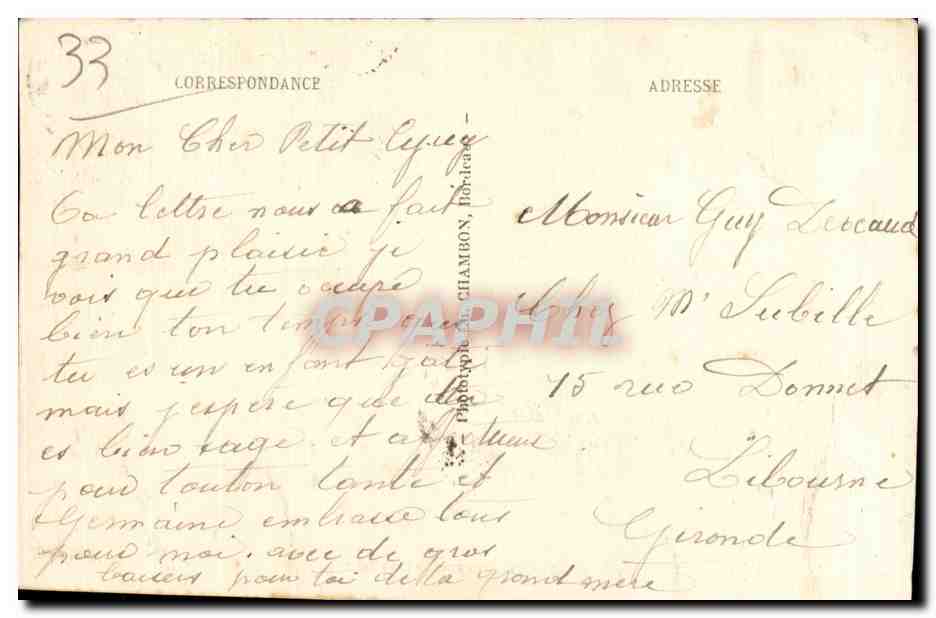 33
CORRESPONDANCE
Mon Cher Petit Guy
Ta lettre nous a fait
grand plaisir je
vois que tu occupe
bien ton temps que
tu es un enfant gâté
mais j'espere que tu
es bien sage et affectueux
pour tonton tante et
Germaine embrasse tous
pour moi. avec de gros
baisers pour toi de ta grand mère
Phototypie M. CHAMBON, Bordeaux
ADRESSE
Monsieur Guy
Chez Mr Subille
15 rue Donnet
Libourne
Gironde
CPAPHIL